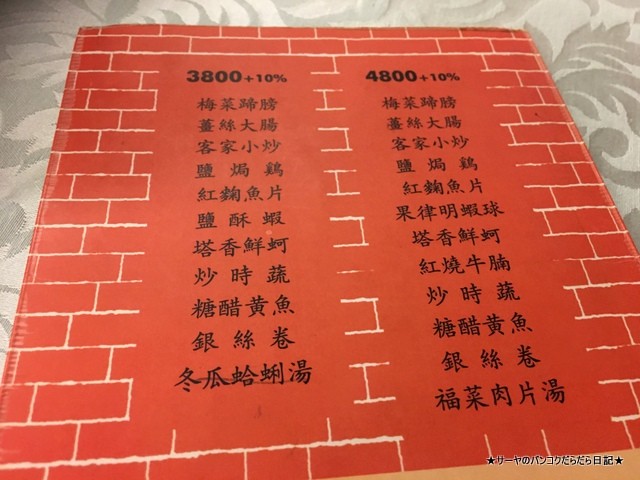 3800+10%
梅菜蹄膀
薑絲大腸
客家小炒
鹽焗鷄
紅麴魚片
鹽酥蝦
塔香鮮蚵
炒時蔬
糖醋黃魚
銀絲卷
冬瓜蛤蜊湯
4800+10%
梅菜蹄膀
薑絲大腸
客家小炒
鹽焗鷄
紅麴魚片
果律明蝦球
塔香鮮蚵
紅燒牛腩
炒時蔬
糖醋黃魚
銀絲卷
福菜肉片湯
★サーヤのバンコクだらだら日記★